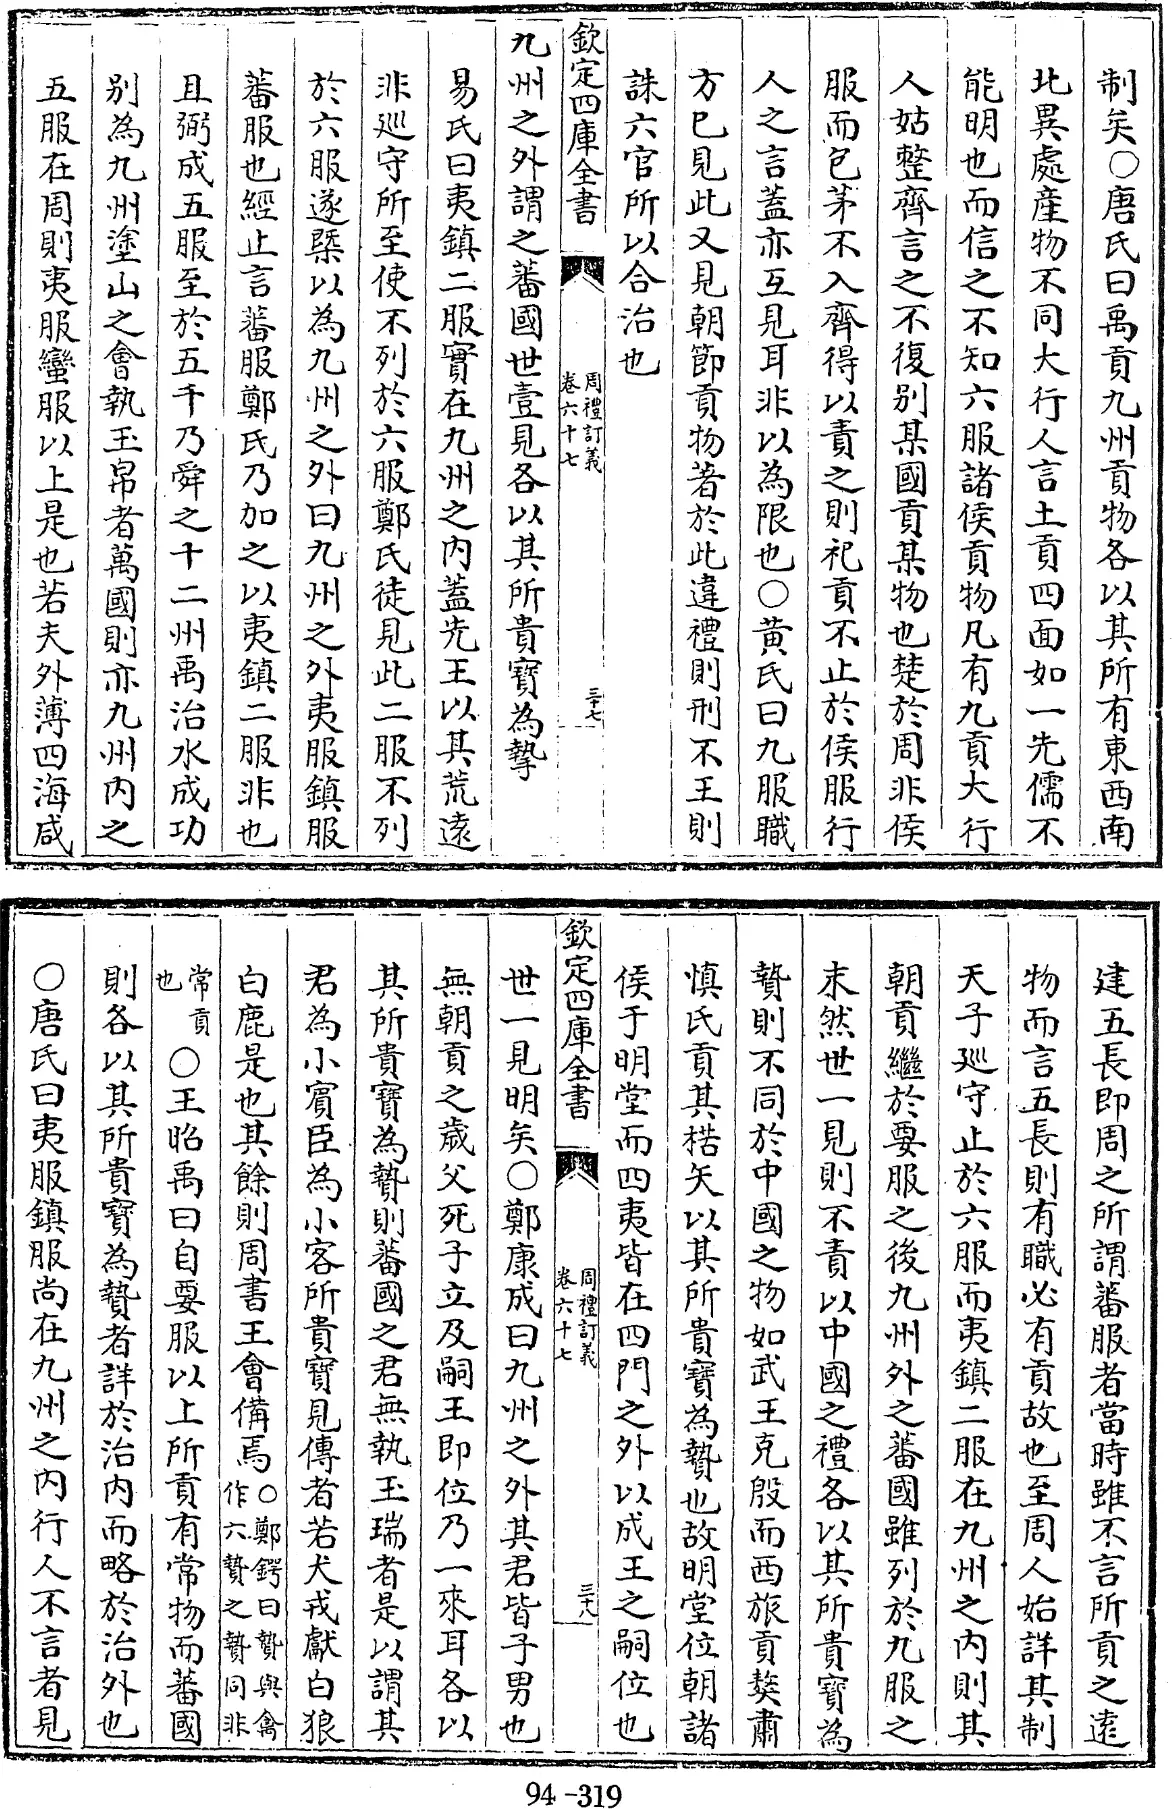 制矣○唐氏曰禹貢九州貢物各以其所有東西南
北異處産物不同大行人言土貢四面如一先儒不
能明也而信之不知六服諸侯貢物凡有九貢大行
人姑整齊言之不復别某國貢某物也楚於周非侯
服而包茅不入齊得以責之則祀貢不止於侯服行
人之言蓋亦互見耳非以為限也○黄氏曰九服職
方已見此又見朝節貢物著於此違禮則刑不王則
誅六官所以合治也
欽定四庫全書
周禮訂義
卷六十七
三十七
九州之外謂之蕃國世壹見各以其所貴寳為摯
易氏曰夷鎮二服實在九州之内蓋先王以其荒遠
非廵守所至使不列於六服鄭氏徒見此二服不列
於六服遂槩以為九州之外曰九州之外夷服鎮服
蕃服也經止言蕃服鄭氏乃加之以夷鎮二服非也
且弼成五服至於五千乃舜之十二州禹治水成功
别為九州塗山之會執玉帛者萬國則亦九州内之
五服在周則夷服蠻服以上是也若夫外薄四海咸
建五長即周之所謂蕃服者當時雖不言所貢之遠
物而言五長則有職必有貢故也至周人始詳其制
天子廵守止於六服而夷鎮二服在九州之内則其
朝貢繼於要服之後九州外之蕃國雖列於九服之
末然世一見則不責以中國之禮各以其所貴寳為
贄則不同於中國之物如武王克殷而西旅貢獒肅
慎氏貢其楛矢以其所貴寳為贄也故明堂位朝諸
侯于明堂而四夷皆在四門之外以成王之嗣位也
欽定四庫全書
周禮訂義
卷六十七
三十八
世一見明矣○鄭康成曰九州之外其君皆子男也
無朝貢之歲父死子立及嗣王即位乃一來耳各以
其所貴寳為贄則蕃國之君無執玉瑞者是以謂其
君為小賓臣為小客所貴寳見傳者若犬戎獻白狼
白鹿是也其餘則周書王會備焉○鄭鍔曰贄與禽
作六贄之贄同非
常貢
也○王昭禹曰自要服以上所貢有常物而蕃國
則各以其所貴寳為贄者詳於治内而略於治外也
○唐氏曰夷服鎮服尚在九州之内行人不言者見
94-319